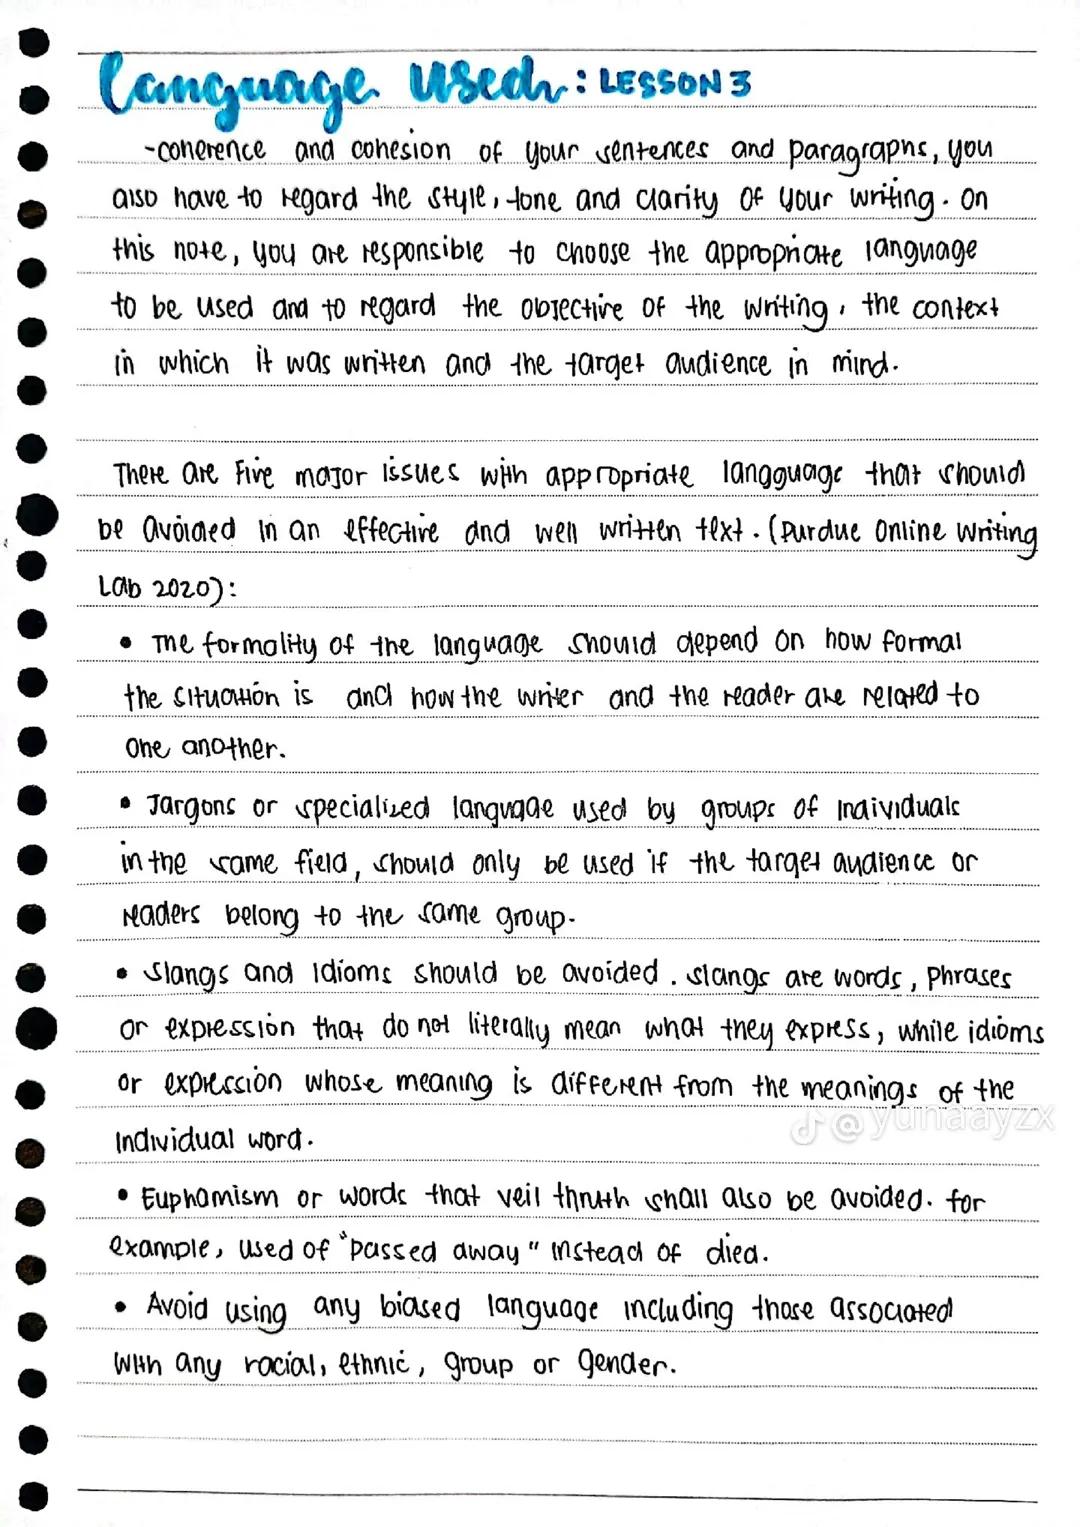 Language used: LESSON 3
-coherence and cohesion of your sentences and paragraphs, you
also have to regard the style, tone and clarity of your writing. On
this note, you are responsible to choose the appropriate language
to be used and to regard the objective of the writing, the context
in which it was written and the target audience in mind.
There are Five major issues with appropriate langguage that should
be avoided in an effective and well written text. (Purdue Online Writing
Lab 2020):
• The formality of the language should depend on how formal
the situation is and how the writer and the reader are related to
one another.
• Jargons or specialized language used by groups of individuals
in the same field, should only be used if the target audience or
readers belong to the same group.
• Slangs and Idioms should be avoided. Slangs are words, phrases
or expression that do not literally mean what they express, while idioms
or expression whose meaning is different from the meanings of the
@yunaayzx
individual word.
• Euphamism or words that veil thruth shall also be avoided. for
example, used of "passed away" instead of died.
• Avoid using any biased language including those associated
with any racial, ethnic, group or gender.